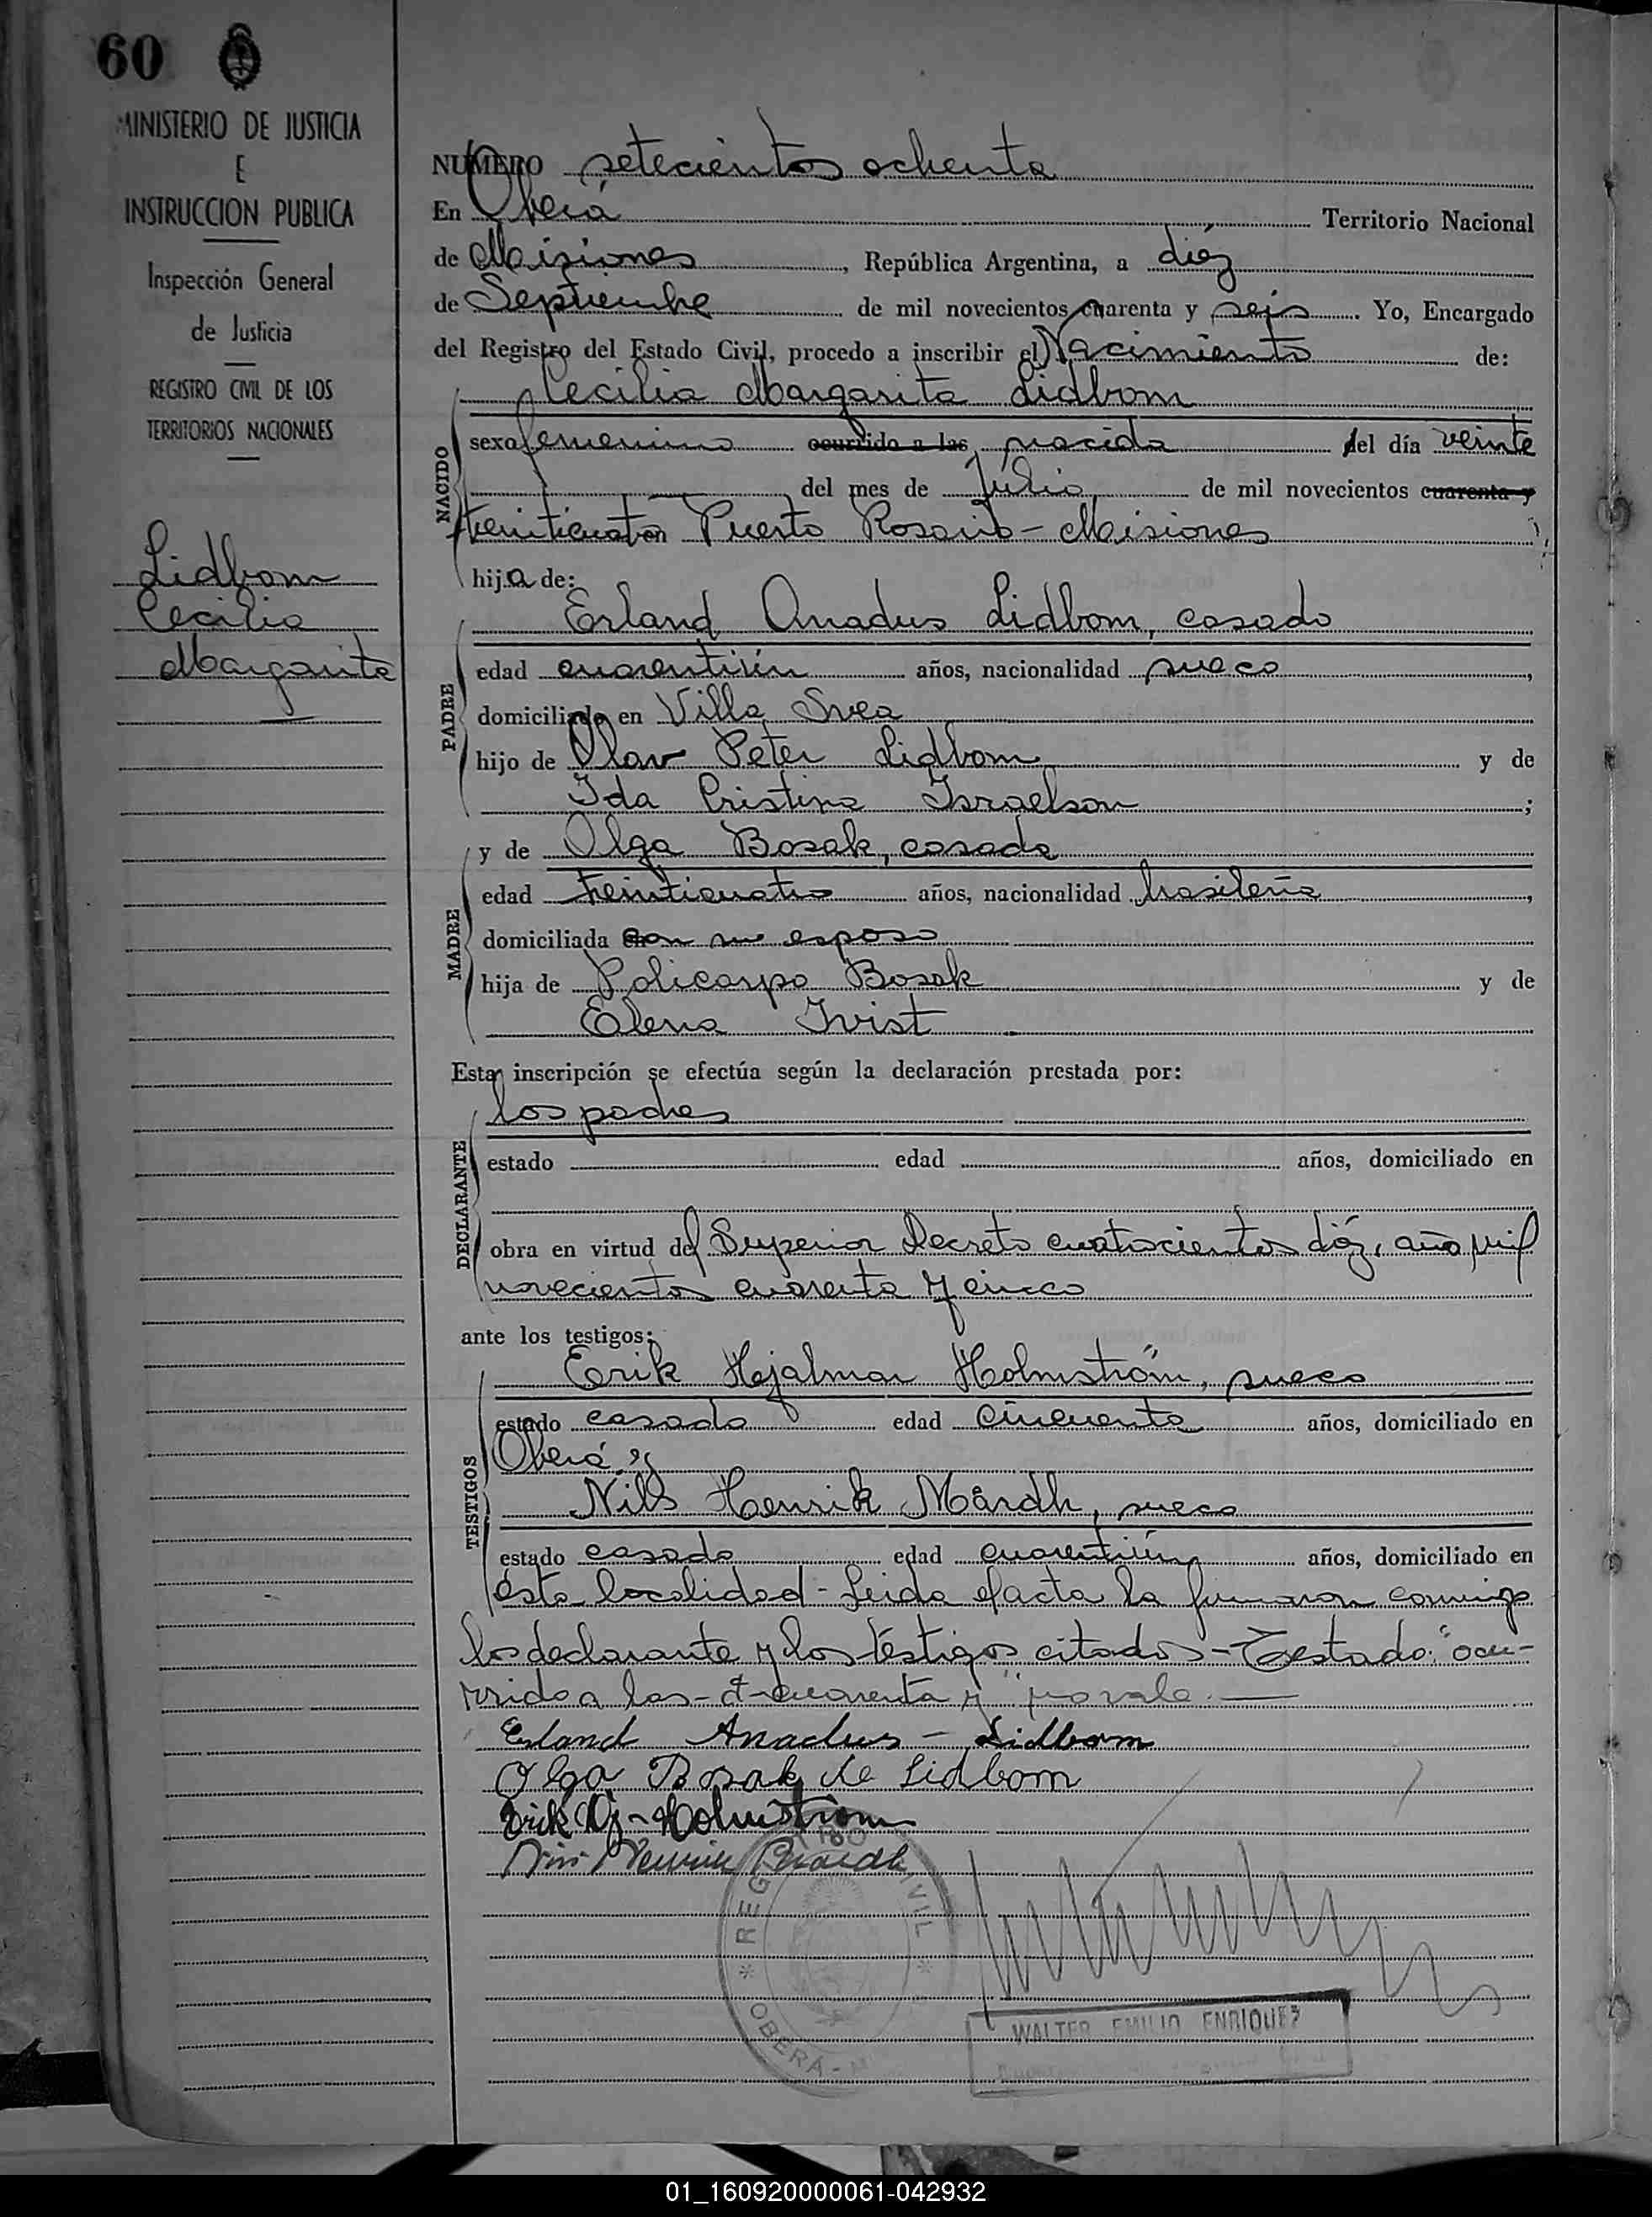 60
MINISTERIO DE JUSTICIA
E
INSTRUCCION PUBLICA
Inspección General
de Justicia
REGISTRO CIVIL DE LOS
TERRITORIOS NACIONALES
Lidbom
Cecilia
Margarita
NUMERO setecientos ochenta
En Oberá Territorio Nacional
de Misiones, República Argentina, a diez
de Septiembre de mil novecientos cuarenta y seis. Yo, Encargado
del Registro del Estado Civil, procedo a inscribir el Nacimiento de:
Cecilia Margarita Lidbom
NACIDO
sexo femenino ocurrido a las nacida del día veinte
del mes de Julio, de mil novecientos cuarenta y
treinticuatro Puerto Rosario - Misiones
hija de:
Erland Amadus Lidbom, casado
PADRE
edad cuarentiún años, nacionalidad sueco,
domiciliado en Villa Svea
hijo de Olav Peter Lidbom y de
Ida Cristina Israelson;
y de Olga Bosak, casada
MADRE
edad treinticuatro años, nacionalidad brasileña,
domiciliada con su esposo
hija de Policarpo Bosak y de
Elena Ivist
Esta inscripción se efectúa según la declaración prestada por:
los padres
DECLARANTE
estado edad años, domiciliado en
obra en virtud del Superior Decreto cuatrocientos diéz, año mil
novecientos cuarenta y cinco
ante los testigos:
Erik Hjalmar Holmström, sueco
TESTIGOS
estado casado edad cincuenta años, domiciliado en
Oberá y
Nils Henrik Mårdh, sueco
estado casado edad cuarentiún años, domiciliado en
ésta localidad - Leida el acta la firmaron conmigo
los declarante y los testigos citados - Testado: "ocu-
rrido a las - d - cuarenta y" no vale. —
Erland Amadus - Lidbom
Olga Bosak de Lidbom
Erik Hj - Holmström
REG CIVIL
OBERÁ - M
WALTER EMILIO ENRIQUEZ
01_160920000061-042932